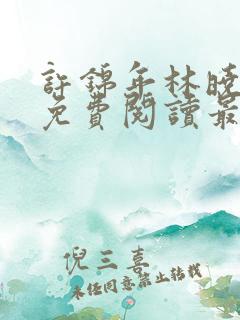 許錦年林曉
免費閱讀最
倪三喜
未经同意禁止转载